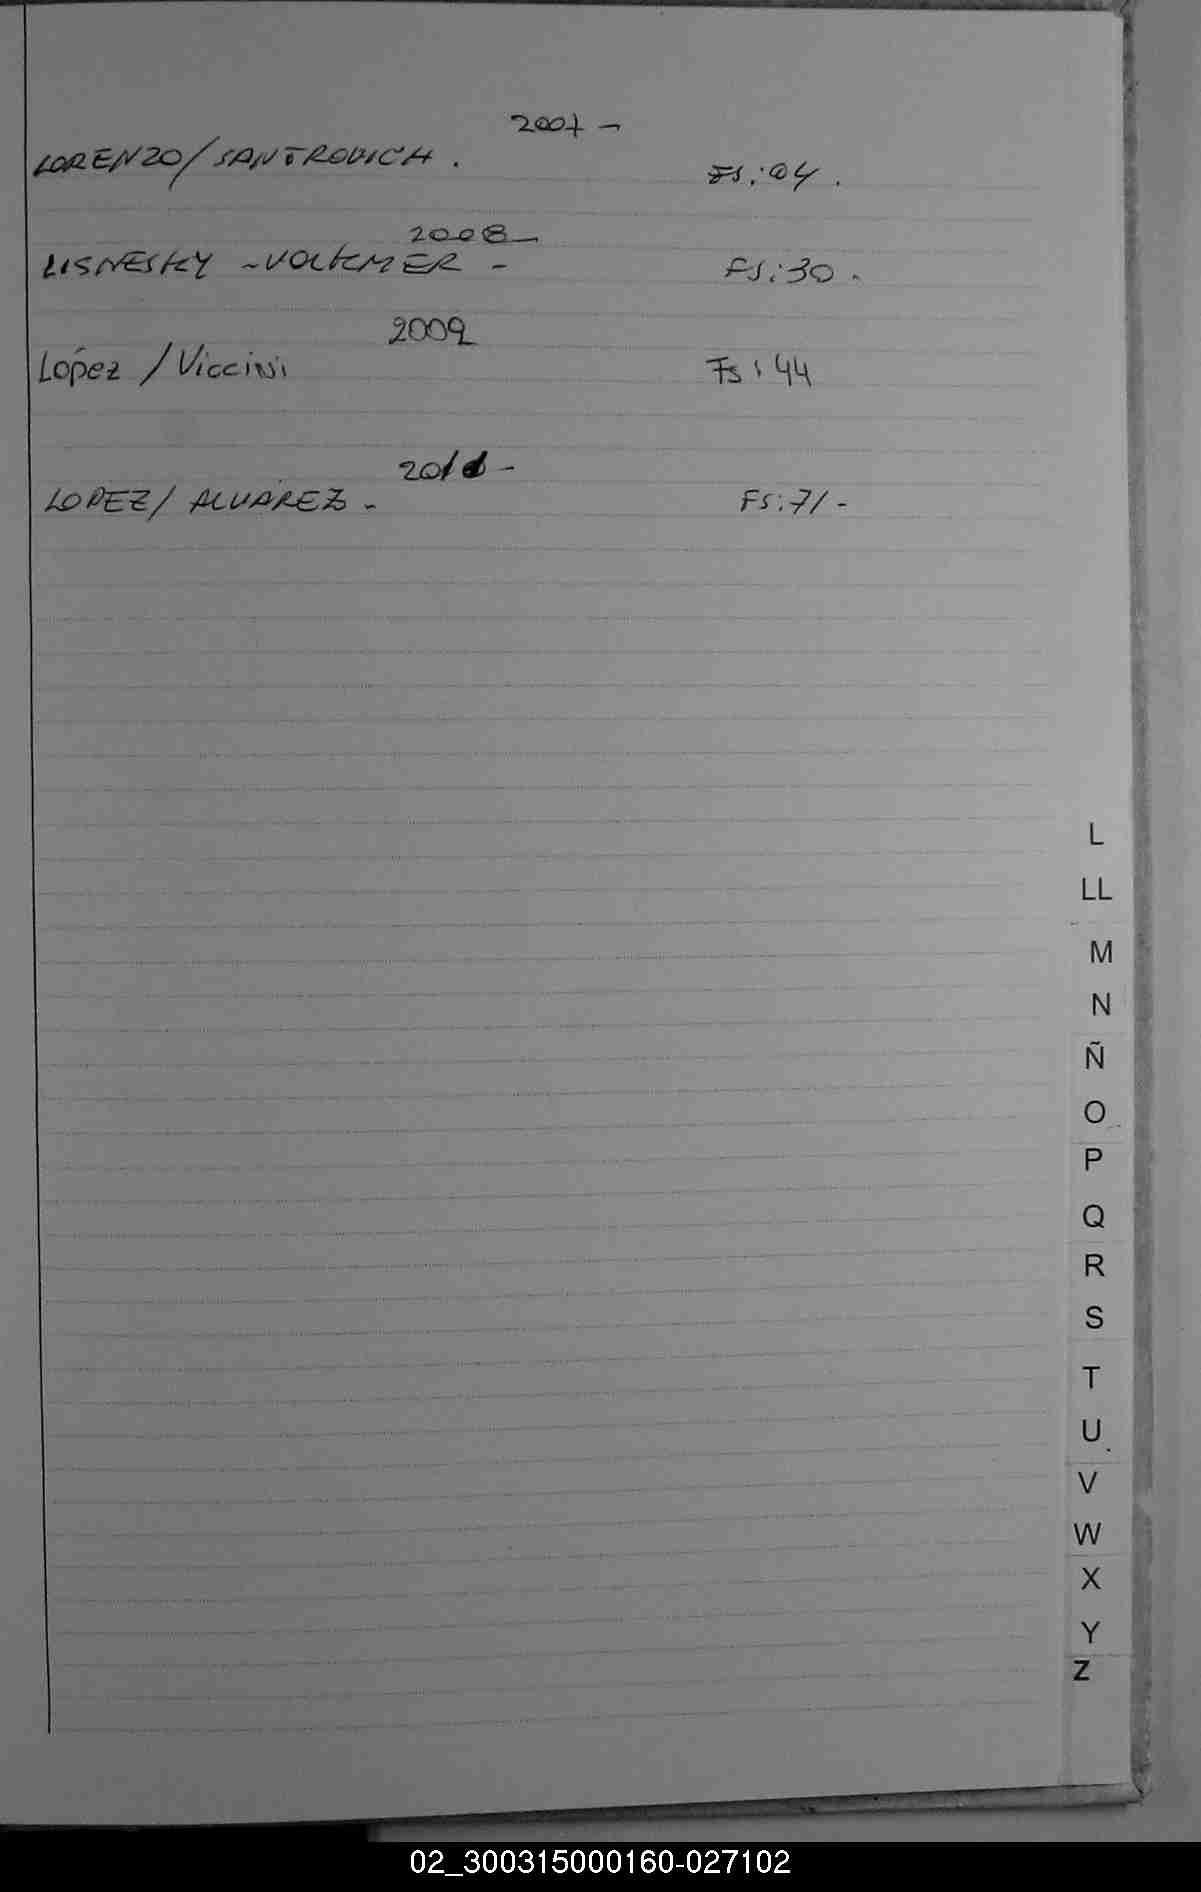 2007 -
LORENZO/SANTROVICH. Fs: 04.
2008-
LISNESKY -VOLKMER - FS: 30.
2009
López /Viccini Fs: 44
2011-
LOPEZ/ ALVAREZ - FS: 71-
L
LL
M
N
Ñ
O
P
Q
R
S
T
U
V
W
X
Y
Z
02_300315000160-027102